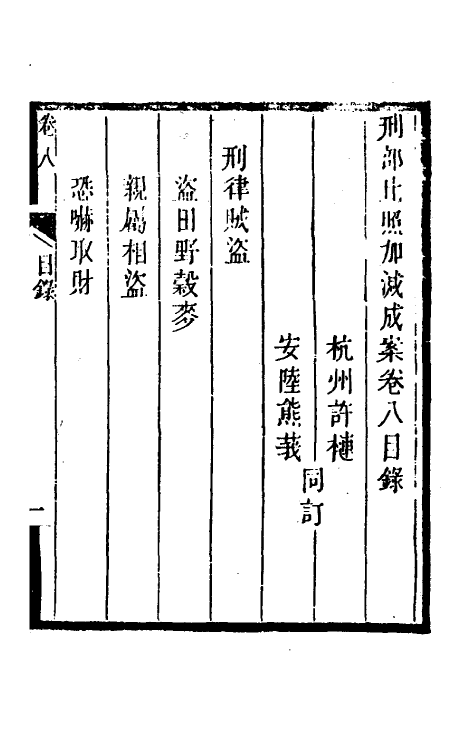 刑部比照加減成案卷八目錄
杭州許槤
安陸熊莪
同訂
刑律賊盜
盜田野穀麥
親屬相盜
恐嚇取財
卷八
目錄
一